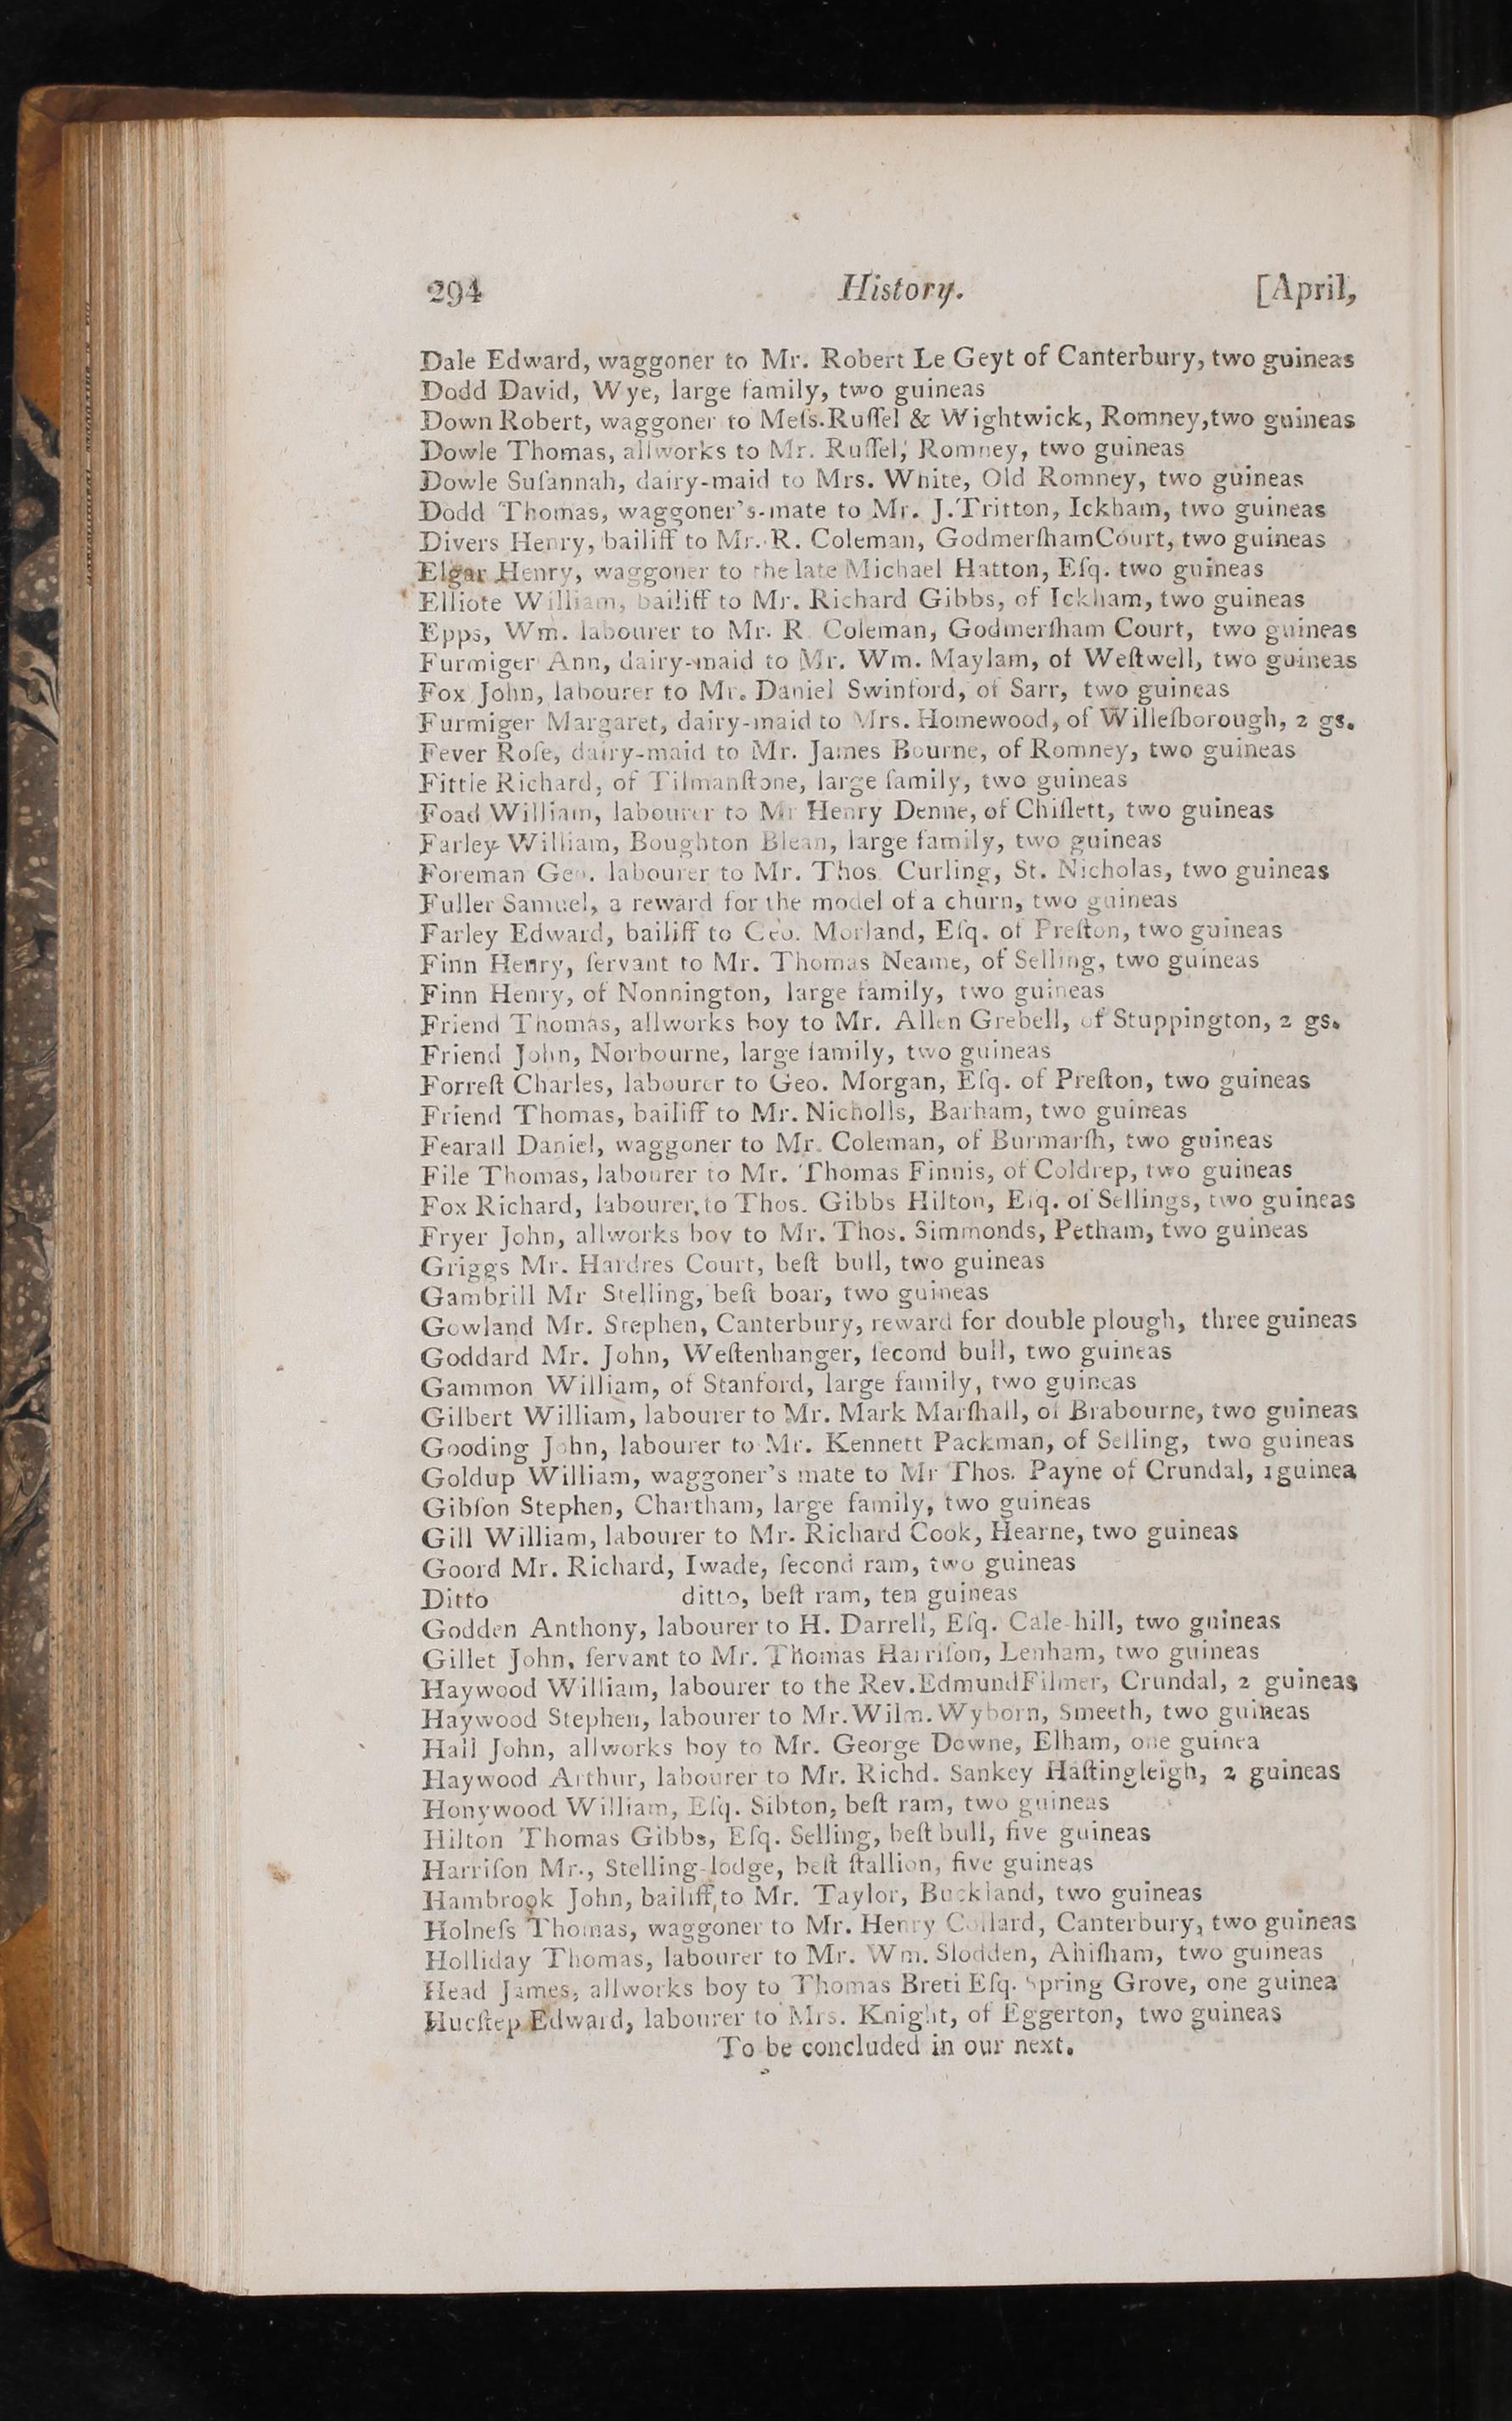 294 History. [April,
Dale Edward, waggoner to Mr. Robert Le Geyt of Canterbury, two guineas
Dodd David, Wye, large family, two guineas
Down Robert, waggoner to Meſs. Ruſſel & Wightwick, Romney, two guineas
Dowle Thomas, allworks to Mr. Ruſſel, Romney, two guineas
Dowle Suſannah, dairy-maid to Mrs. White, Old Romney, two guineas
Dodd Thomas, waggoner's-mate to Mr. J. Tritton, Ickham, two guineas
Divers Henry, bailiff to Mr. R. Coleman, Godmerſham Court, two guineas
Elgar Henry, waggoner to the late Michael Hatton, Eſq. two guineas
Elliote William, bailiff to Mr. Richard Gibbs, of Ickham, two guineas
Epps, Wm. labourer to Mr. R. Coleman, Godmerſham Court, two guineas
Furmiger Ann, dairy-maid to Mr. Wm. Maylam, of Weſtwell, two guineas
Fox John, labourer to Mr. Daniel Swinford, of Sarr, two guineas
Furmiger Margaret, dairy-maid to Mrs. Homewood, of Willeſborough, 2 gs.
Fever Roſe, dairy-maid to Mr. James Bourne, of Romney, two guineas
Fittle Richard, of Tilmanſtone, large family, two guineas
Foad William, labourer to Mr Henry Denne, of Chiſlett, two guineas
Farley William, Boughton Blean, large family, two guineas
Foreman Geo. labourer to Mr. Thos. Curling, St. Nicholas, two guineas
Fuller Samuel, a reward for the model of a churn, two guineas
Farley Edward, bailiff to Geo. Morland, Eſq. of Preſton, two guineas
Finn Henry, ſervant to Mr. Thomas Neame, of Selling, two guineas
Finn Henry, of Nonnington, large family, two guineas
Friend Thomas, allworks boy to Mr. Allen Grebell, of Stuppington, 2 gs.
Friend John, Norbourne, large family, two guineas
Forreſt Charles, labourer to Geo. Morgan, Eſq. of Preſton, two guineas
Friend Thomas, bailiff to Mr. Nicholls, Barham, two guineas
Fearall Daniel, waggoner to Mr. Coleman, of Burmarſh, two guineas
File Thomas, labourer to Mr. Thomas Finnis, of Coldrep, two guineas
Fox Richard, labourer, to Thos. Gibbs Hilton, Eſq. of Sellings, two guineas
Fryer John, allworks boy to Mr. Thos. Simmonds, Petham, two guineas
Griggs Mr. Hardres Court, beſt bull, two guineas
Gambrill Mr Stelling, beſt boar, two guineas
Gowland Mr. Stephen, Canterbury, reward for double plough, three guineas
Goddard Mr. John, Weſtenhanger, ſecond bull, two guineas
Gammon William, of Stanford, large family, two guineas
Gilbert William, labourer to Mr. Mark Marſhall, of Brabourne, two guineas
Gooding John, labourer to Mr. Kennett Packman, of Selling, two guineas
Goldup William, waggoner's mate to Mr Thos. Payne of Crundal, 1 guinea
Gibſon Stephen, Chartham, large family, two guineas
Gill William, labourer to Mr. Richard Cook, Hearne, two guineas
Goord Mr. Richard, Iwade, ſecond ram, two guineas
Ditto ditto, beſt ram, ten guineas
Godden Anthony, labourer to H. Darrell, Eſq. Cale-hill, two guineas
Gillet John, ſervant to Mr. Thomas Harriſon, Lenham, two guineas
Haywood William, labourer to the Rev. Edmund Filmer, Crundal, 2 guineas
Haywood Stephen, labourer to Mr. Wilm. Wyborn, Smeeth, two guineas
Hall John, allworks boy to Mr. George Downe, Elham, one guinea
Haywood Arthur, labourer to Mr. Richd. Sankey Haſtingleigh, 2 guineas
Honywood William, Eſq. Sibton, beſt ram, two guineas
Hilton Thomas Gibbs, Eſq. Selling, beſt bull, five guineas
Harriſon Mr., Stelling-lodge, beſt ſtallion, five guineas
Hambrook John, bailiff, to Mr. Taylor, Buckland, two guineas
Holneſs Thomas, waggoner to Mr. Henry Collard, Canterbury, two guineas
Holliday Thomas, labourer to Mr. Wm. Slodden, Ahiſham, two guineas
Head James, allworks boy to Thomas Brett Eſq. Spring Grove, one guinea
Hucſtep Edward, labourer to Mrs. Knight, of Eggerton, two guineas
To be concluded in our next.